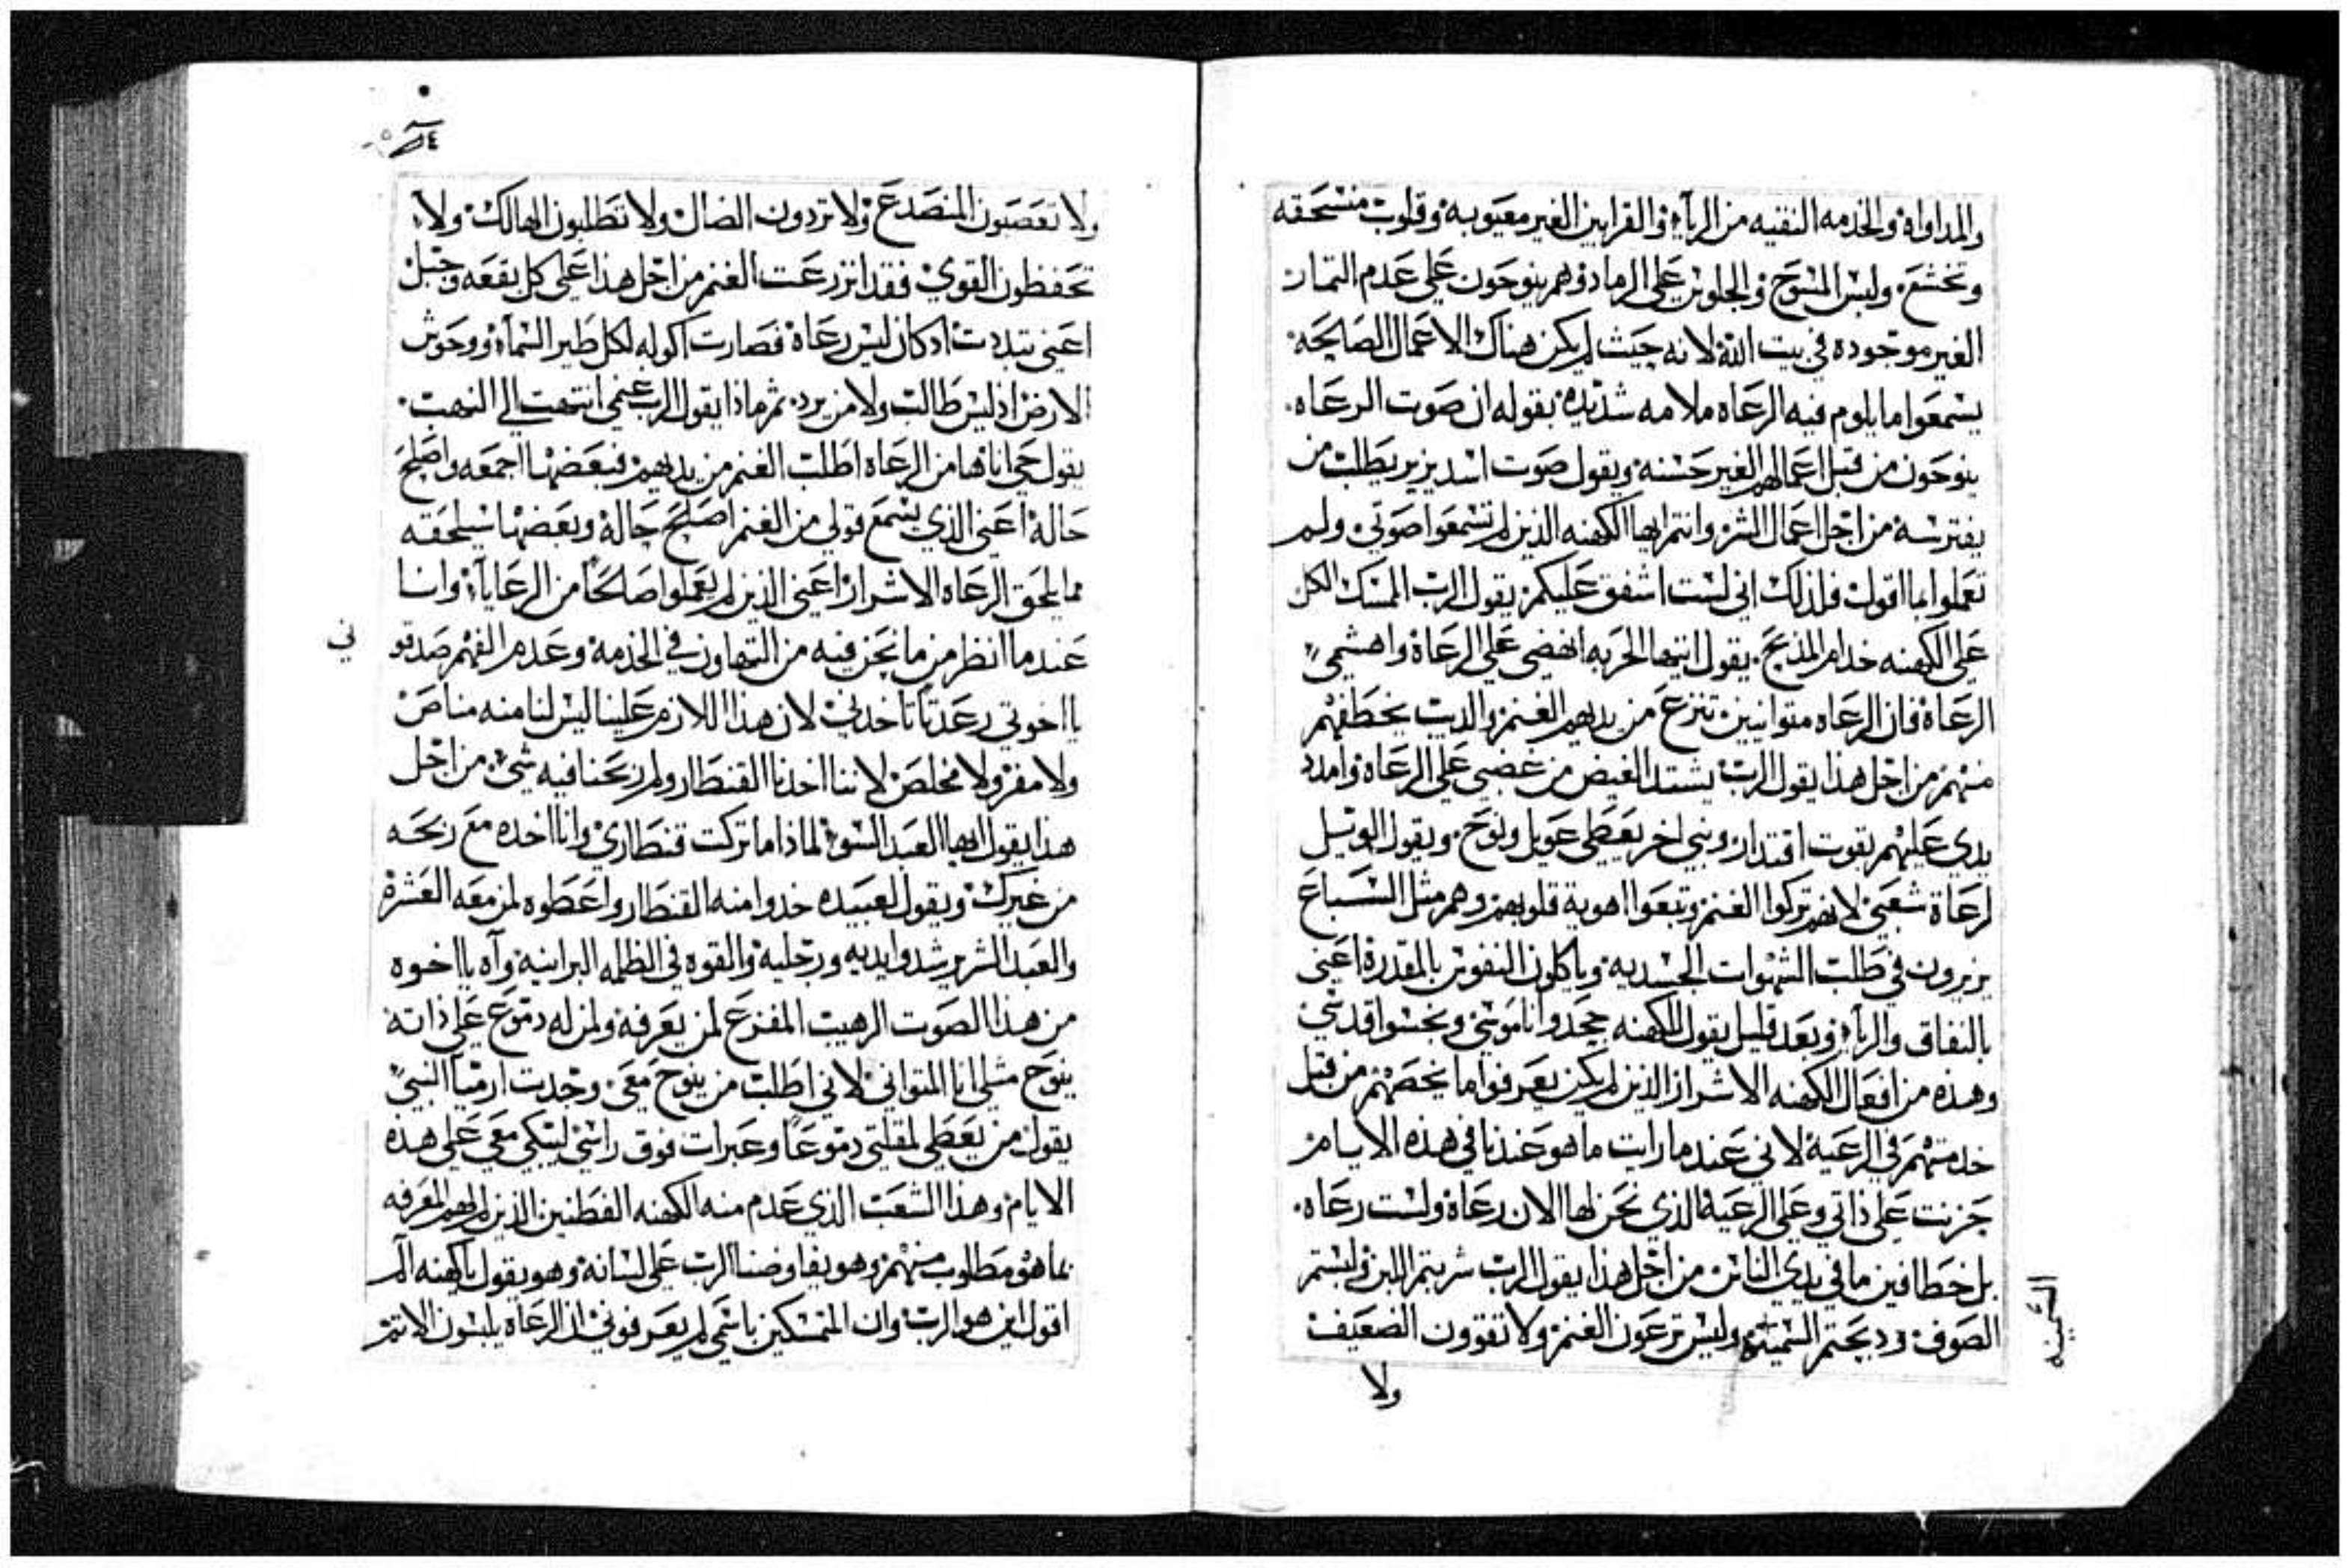 والمداواة والخدمه النقيه من الرياء والقرابين الغير معيوبه وقلوب منسحقه
وتخشع. ولبس المسوح والجلوس على الرماد وهم ينوحون على عدم الثمار
الغير موجوده في بيت الله لانه حيث لم يكن هناك الاعمال الصالحه
يسمعوا ما يلوم فيه الرعاه ملامه شديده بقوله ان صوت الرعاه.
ينوحون من قبل اعمالهم الغير حسنه ويقول صوت اسد يزير يطلب من
يفترسه من اجل اعمال الشر وانتم ايها الكهنه الذين لم تسمعوا صوتي ولم
تعملوا بما اقول فلذلك اني لست اشفق عليكم يقول الرب الممسك الكل
على الكهنه خدام المذبح. يقول ايتها الحربه انهضي على الرعاة واهشمي
الرعاة فان الرعاه متوانيين تنزع من يديهم الغنم والديب يخطفهم
منهم من اجل هذا يقول الرب يشتد الغيض من غضبي على الرعاة وامدد
يدي عليهم بقوت اقتدار ونبي اخر يعطي عويل ونوح. ويقول الويل
لرعاة شعبي لانهم تركوا الغنم وتبعوا اهوية قلوبهم وهم مثل السباع
يزيرون في طلب الشهوات الجسديه وياكلون النفوس بالمقدرة اعني
بالنفاق والرياء وبعد قليل يقول الكهنه جحدوا ناموسي ونجسوا قدسي
وهذه من افعال الكهنه الاشرار الذين لم يكن يعرفوا ما يخصهم من قبل
خدمتهم في الرعيه لاني عندما رايت ما هو عندنا في هذه الايام
حزنت على ذاتي وعلى الرعية الذي نحن لها الان رعاة ولست رعاه.
بل خطافين ما في يدي الناس من اجل هذا يقول الرب شربتم اللبن ولبستم
الصوف ودبحتم السمينه وليس ترعون الغنم ولا تقوون الضعيف
السمينه
ولا
ولا تعصبون المنصدع ولا تردون الضال ولا تطلبون الهالك ولا
تحفظون القوي فقد انزرعت الغنم من اجل هذا على كل بقعه وجبل
اعني تبددت اد كان ليس رعاة فصارت اكوله لكل طير السماء ووحوش
الارض اذ ليس طالب ولا من يرد. ثم ماذا يقول الرب عني انتهت الى النهب.
يقول حي انا فها من الرعاه اطلب الغنم من يديهم فبعضها اجمعه واصلح
حالة اعني الذي يسمع قولي من الغنم اصلح حالة وبعضها سيلحقه
مما يلحق الرعاه الاشرار اعني الذين لم يعملوا صالحا من الرعايا وانا
عندما انظر من ما نحن فيه من التهاون في الخدمة وعدم الفهم صدقو
ني
يا اخوتي رعدتا تاخدني لان هذا اللازم علينا ليس لنا منه مناص
ولا مفر ولا مخلص لاننا اخدنا القنطار ولم ربحنا فيه شي من اجل
هذا يقول ايها العبد السوء لماذا ما تركت قنطاري وانا اخده مع ربحه
من غيرك ويقول لعبيده خدوا منه القنطار واعطوه لمن معه العشرة
والعبد الشرير شدوا ايديه ورجليه والقوه في الظلمه البرانية وآه يا اخوه
من هذا الصوت الرهيب المفزع لمن يعرفه ولمن له دموع على ذاته
ينوح مثلي انا المتواني لاني اطلب من ينوح معي. وجدت ارميا النبي
يقول من يعطي لمقلتي دموعا وعبرات فوق راسي ليبكي معي على هذه
الايام وهذا الشعب الذي عدم منه الكهنه الفطنين الذين لهم المعرفه
بما هو مطلوب منهم وهو يفاوضنا الرب على لسانة وهو يقول يا كهنه الم
اقول اين هو الرب وان المتمسكين باسمي لم يعرفوني ان الرعاة يلبسون الاتم